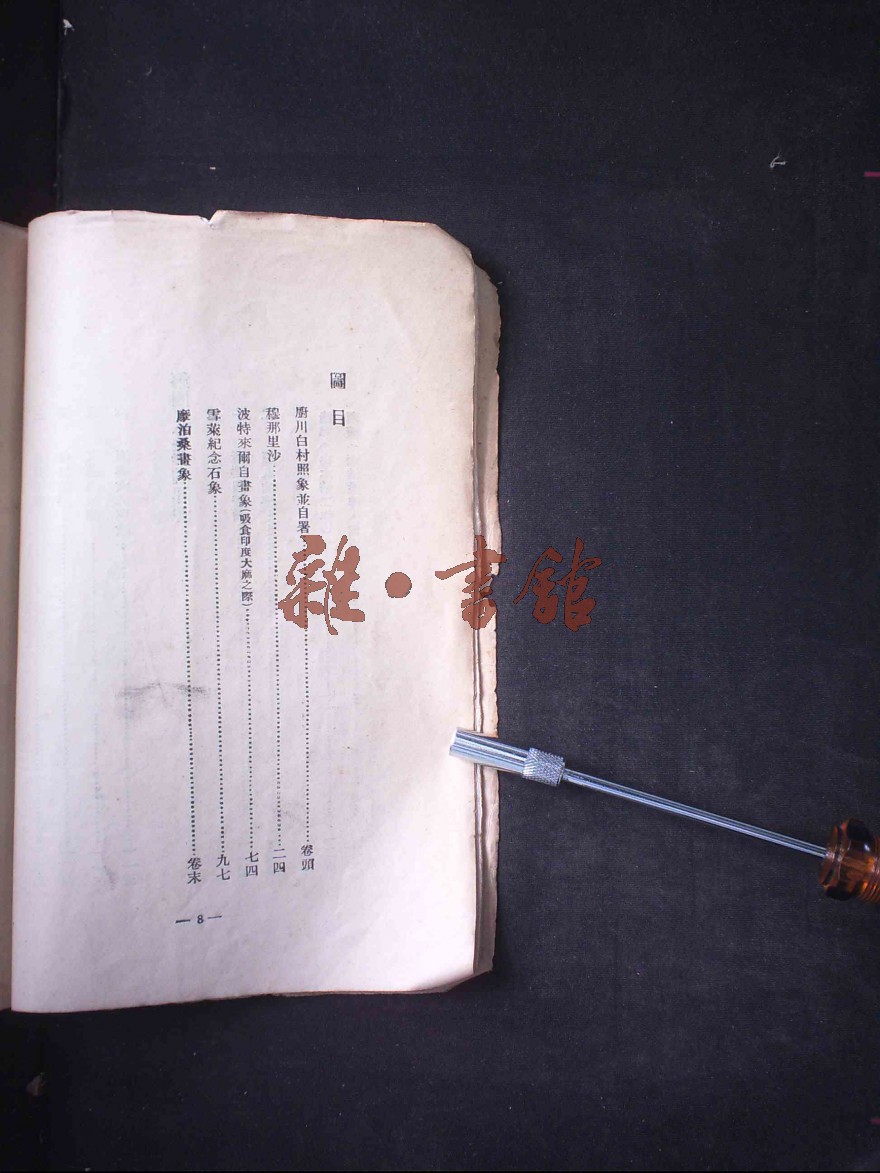 圖目
廚川白村照象並自署……卷頭
穆那里沙……二四
波特來爾自畫象(吸食印度大麻之際)……七四
雪萊紀念石象……九七
摩泊桑畫象……卷末
— 8 —
雜·書館